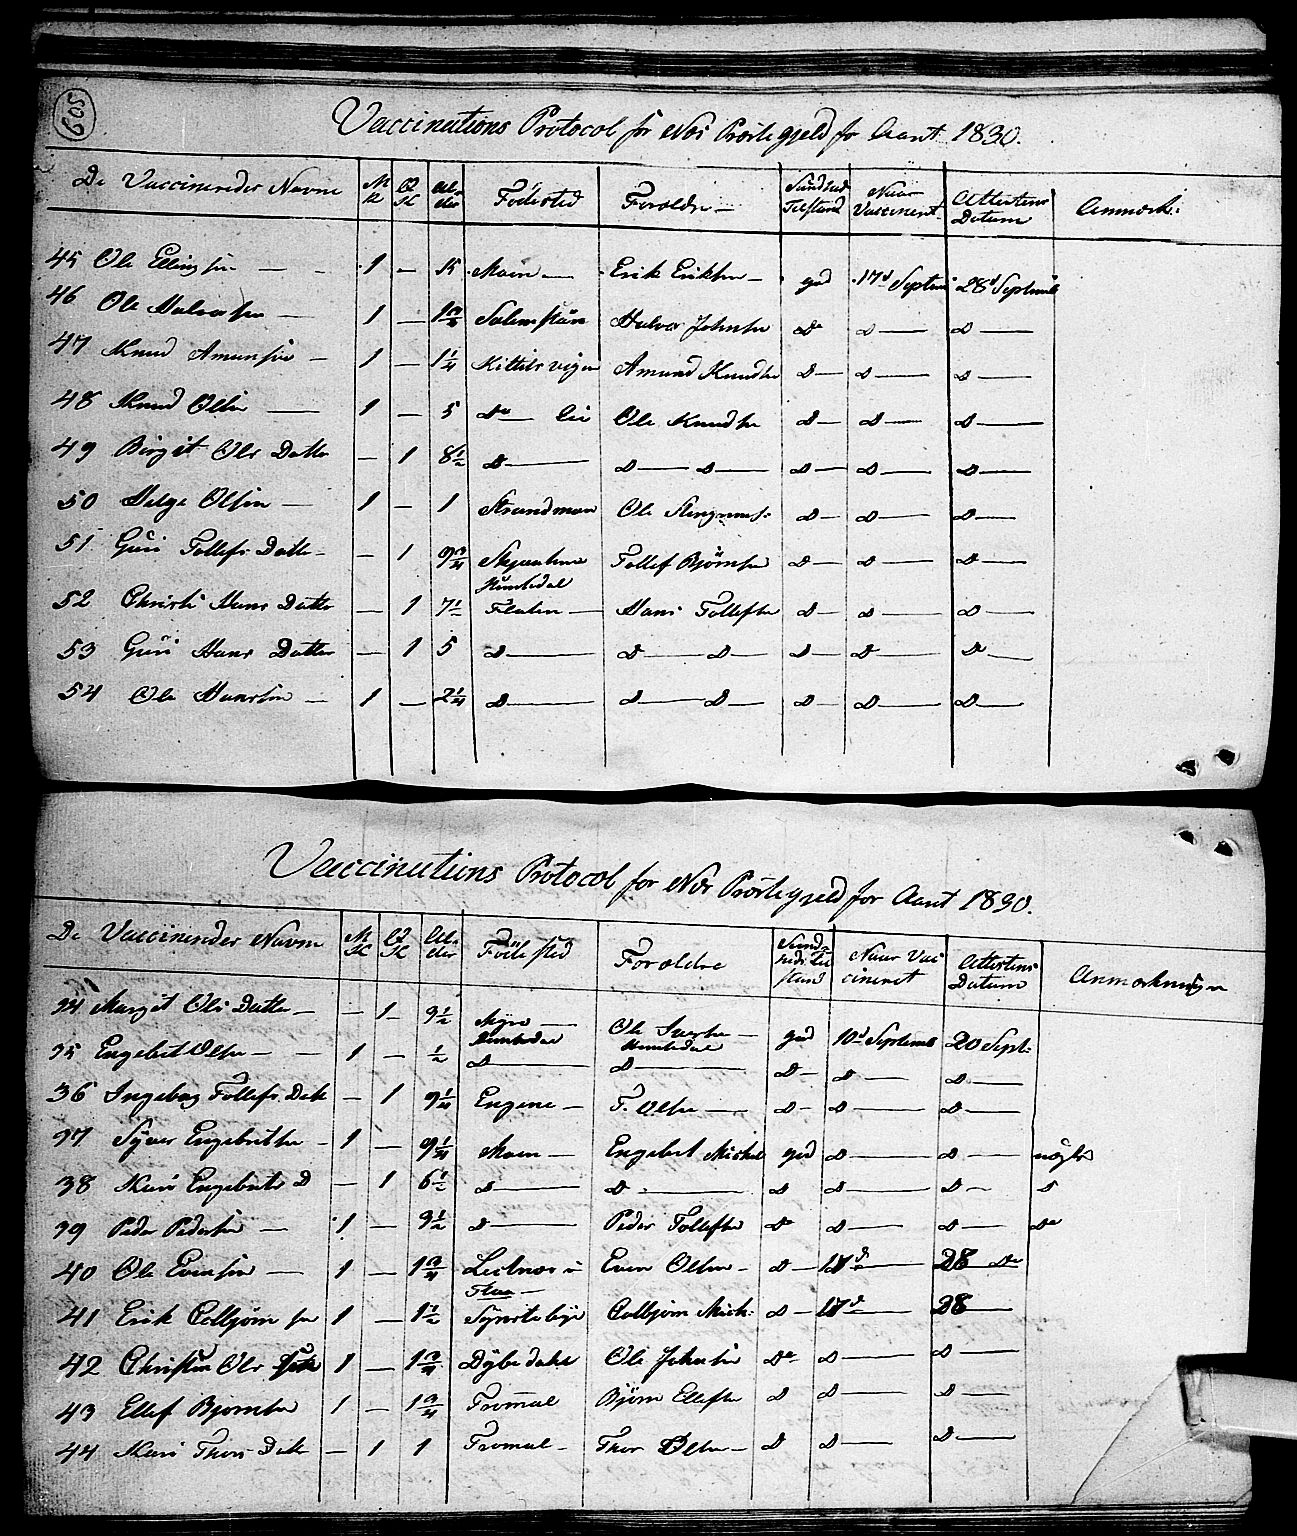 605
Vaccinations Protocol for Næs Præstegjeld for Aaret 1830.
De Vaccineredes Navne | M K | Q K | Al-der | Födested | Foroldre | Sundheds Tilstand | Naar Vaccineret | Attestens Datum | Anmærk:
45 Ole Ellingsen — | 1 | — | 15 | Moen — | Erik Eriksen — | god | 17d Septem | 28d Septemb
46 Ole Halvorsen — | 1 | — | 1 3/4 | | Halvor Johnsen | Do | D — | D —
47 Knud Amunsen — | 1 | — | 1 1/4 | Kittilsvigen | Amund Knudsen | D — | D — | D —
48 Knud Olsen — | 1 | — | 5 | Do — Eie | Ole Knudsen | D — | D — | D —
49 Birgit Ols Datter | — | 1 | 8 1/2 | D — | D — D — | D — | D — | D —
50 Helge Olsen — | 1 | — | 1 | Strandmoen | Ole | D — | D — | D —
51 Guri Tollefs Datter | — | 1 | 9 3/4 | | Tollef Bjørnsen | D — | D — | D —
Hemsedal
52 Christi Hans Datter | — | 1 | 7 1/2 | Flaten — | Hans Tollefsen | D — | D — | D —
53 Guri Hans Datter | — | 1 | 5 | D — | D — D — | D — | D — | Do —
54 Ole Hansen — | 1 | — | 2 1/4 | D — | D — D — | D — | D — | D —
Vaccinations Protocol for Næs Præstegjeld for Aaret 1830.
De Vaccineredes Navne | M K | Q K | Al-der | Födested | Foroldre | Sund-heds til stand | Naar Vaccineret | Attestens Datum | Anmærkninger
34 Margit Ols Datter — | — | 1 — | 9 1/2 | Myre — Hemsedal | Ole — Hemsedal | god | 10d Septemb | 20 Sept:
35 Engebret Olsen — | 1 | — | 1/2 | D — | D — | D — | D — | D —
36 Ingebor Tollefs Datt | — | 1 | 9 1/4 | Engene — | T. Olsen — | D — | D — | D —
37 Syver Engebretsen — | 1 | — | 9 1/4 | Moen — | Engebret Mickel | god | D — | D — |
38 Kari Engebrets D | — | 1 | 6 1/2 | D — | D — | D | D — | D — | D
39 Peder Pedersen — | 1 | — | 9 1/2 | D — | Peder Tollefsen | Do | D — | D — | Do
40 Ole Evensen — | 1 | — | 1 3/4 | | Even Olsen — | D — | 17d — | 28 Do
Flaa —
41 Erik Colbjørnsen | 1 | — | 1 1/2 | | Colbjørn Mick: | D — | 17d — | 28 —
42 Christen Ols | 1 | — | 1 3/4 | Dybedahl | Ole Johnsen | Do | D — | D —
43 Ellef Bjørnsen | 1 | — | 1 3/4 | Tromal | Bjørn Ellefsen | D | D — | D —
44 Kari Thors Datt | — | 1 | 1 | Tromal — | Thor Olsen — | D | D — | D —